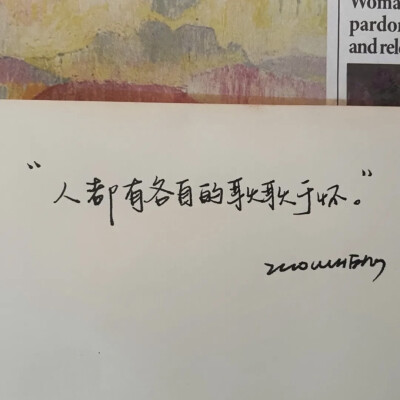 Woma
pardon
and rele
“人都有各自的耿耿于怀。”